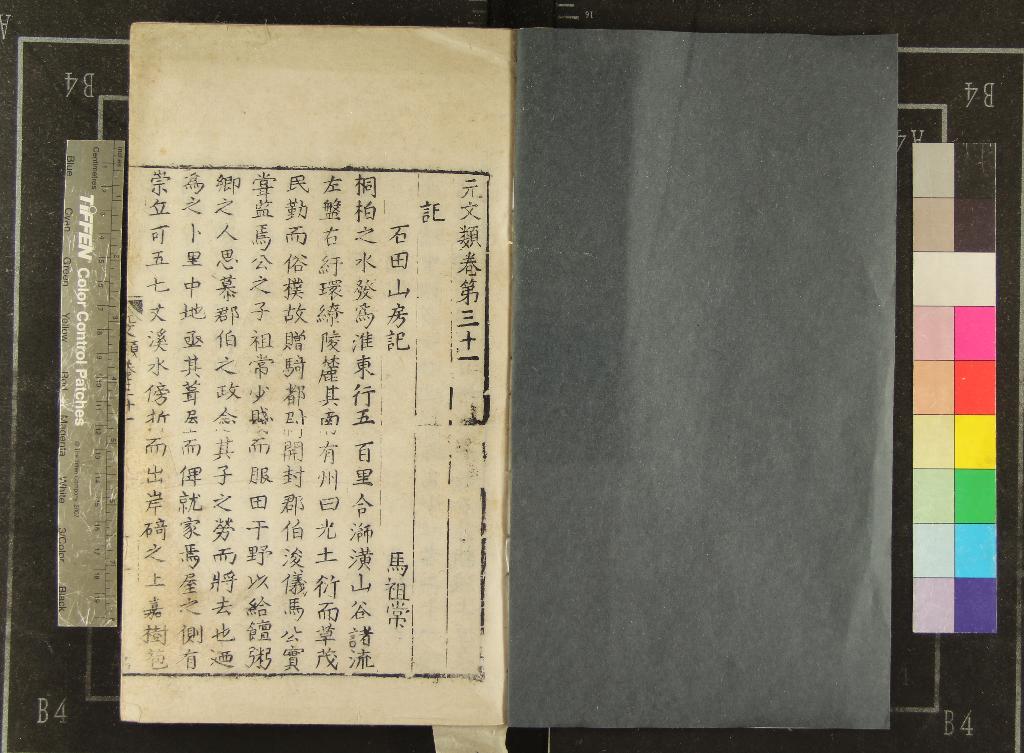 元文類卷第三十一
記
石田山房記 馬祖常
桐柏之水發爲淮東行五百里合溮潢山谷諸流
左盤右紆環繚陵麓其南有州曰光土衍而草茂
民勤而俗樸故贈騎都尉開封郡伯浚儀馬公實
嘗監焉公之子祖常少賤而服田于野以給饘粥
鄉之人思慕郡伯之政念其子之勞而將去也迺
爲之卜里中地亟其葺居而俾就家焉屋之側有
崇丘可五七丈溪水傍折而出岸碕之上嘉樹苞
B4
B4
B4
B4
A4
A
Centimetres
TIFFEN Color Control Patches
Blue
Cyan
Green
Yellow
Red
Magenta
White
3/Color
Black